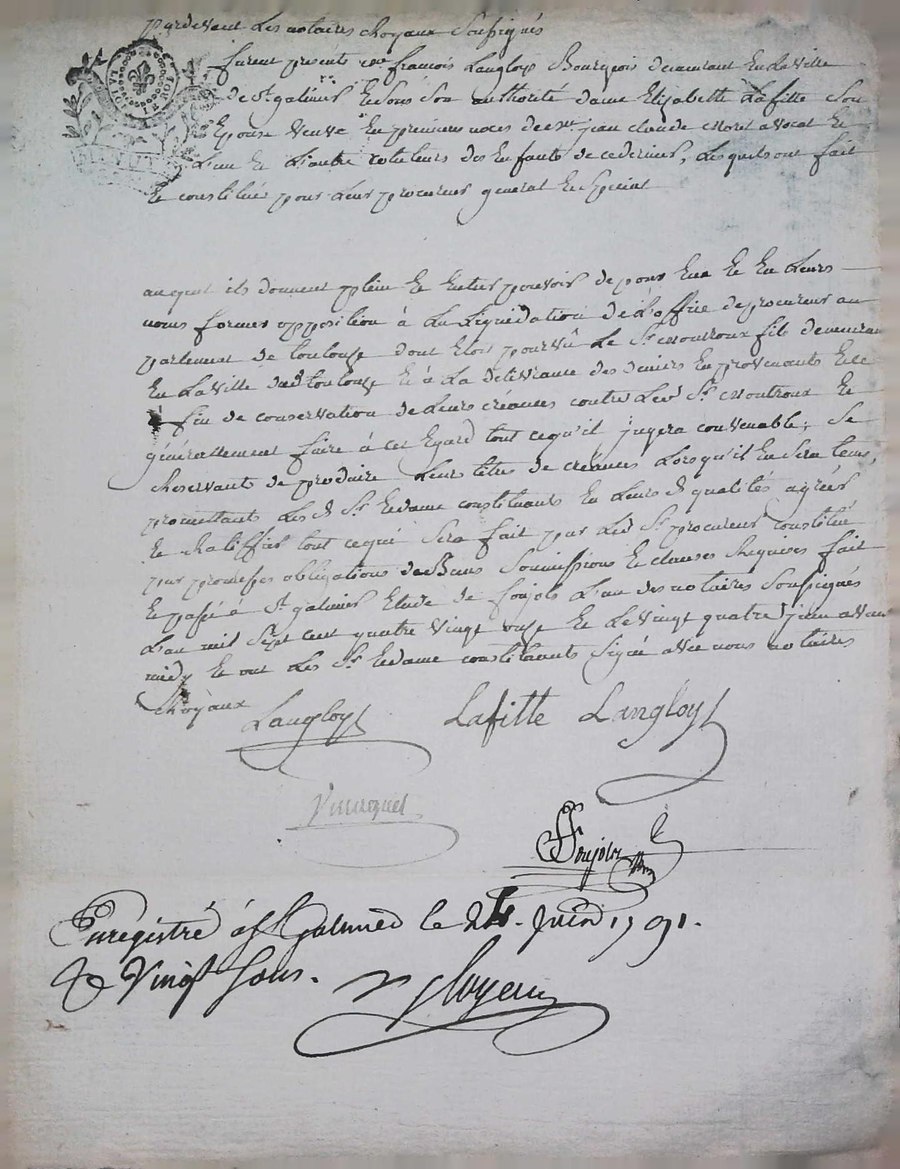 pardevant Les notaires Royaux Soussignés
furent présents françois Langloix Bourgeois demeurant En La ville
de St galmier Et Sous Son authorité dame Elizabette Lafitte Son
Epouse veuve En premieres noces de jean claude avocat Et
L'un Et L'autre cotuteurs des Enfants de ce dernier, Lesquels ont fait
Et constitué pour Leur procureur general Et Special
auquel ils donnent plein Et Entier pouvoir de pour Eux Et En Leurs
noms former opposition à La Liquidation de L'office de procureur au
parlement de toulouse dont Etoit pourvû Le Sr moutroux fils demeurant
En La ville de toulouse Et à La délivrance des deniers En provenants Et ce
à fin de conservation de Leurs créances contre Led Sr moutroux Et
généralement faire à cet Egard tout cequ'il jugera convenable; Se
Reservants de produire Leurs titres de créances Lorsqu'il En Sera tems,
promettants Les d Sr Et dame constituants En Leurs d qualités agréer
Et Ratiffier tout cequi Sera fait par Led Sr procureur constitué
par promesses obligations de Biens Soumissions Et clauses Requises fait
Et passé à St galmier Etude de foujols L'un des notaires Soussignés
L'an mil Sept cent quatre vingt onze Et Le vingt quatre juin avant
midy Et ont Les Sr Et dame constituants Signé avec nous notaires
Royaux
Langloy Lafitte Langloy
foujols
Enregistré à St Galmier le 24 Juin 1791.
R vingt Sous.